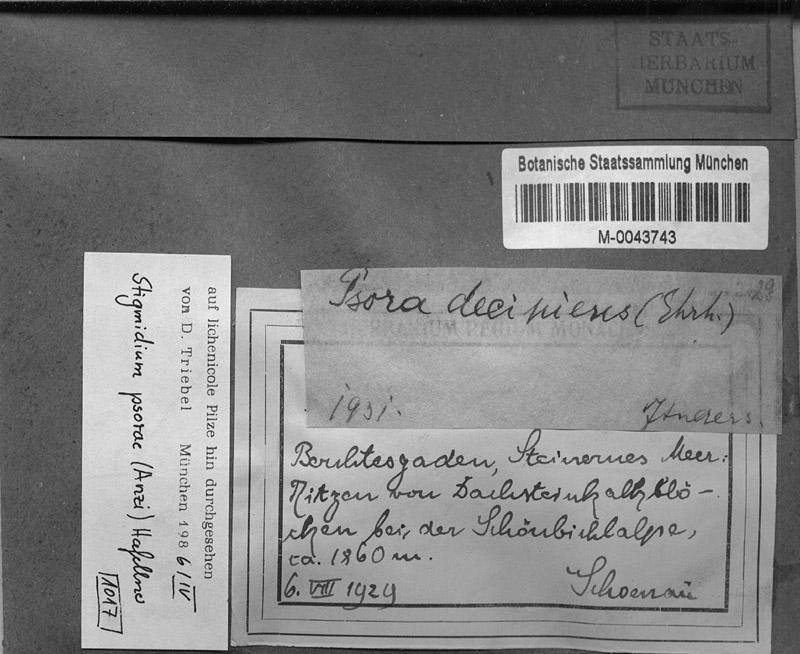 STAATS-
HERBARIUM
MÜNCHEN
Botanische Staatssammlung München
M-0043743
Psora decipiens (Ehrh.)
29
1931.
J Anders.
Berchtesgaden, Steinernes Meer:
Ritzen von Dachsteinkalkblö-
chen bei der Schönbichlalpe,
ca. 1860 m.
6. VIII 1929
Schoenau
auf lichenicole Pilze hin durchgesehen
von D. Triebel München 198 6/IV
Stigmidium psorae (Anzi) Hafellner
1017